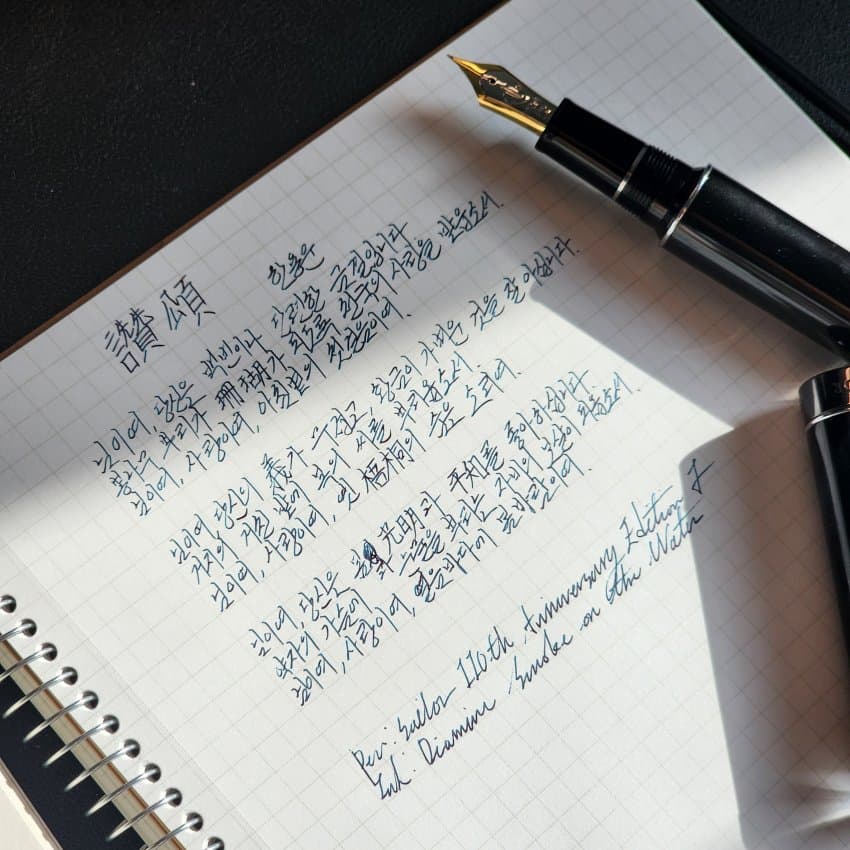 讚頌 한용운
님이여, 당신은 백번이나 단련한 금결입니다
뽕나무 뿌리가 珊瑚가 되도록 천국의 사랑을 받읍소서.
님이여, 사랑이여, 아침볕의 첫걸음이여.
님이여 당신의 義가 무겁고, 황금이 가벼운 것을 잘 아십니다.
거지의 거친 밭에 복의 씨를 뿌리옵소서
님이여, 사랑이여, 옛 梧桐의 숨은 소리여.
님이여, 당신은 봄 光明과 平和를 좋아하십니다
약자의 가슴에 눈물을 뿌리는 자비의 보살이 되옵소서.
님이여, 사랑이여, 얼음바다에 봄바람이여.
Pen: Sailor 110th Anniversary Edition F
Ink: Diamine Smoke on the Water